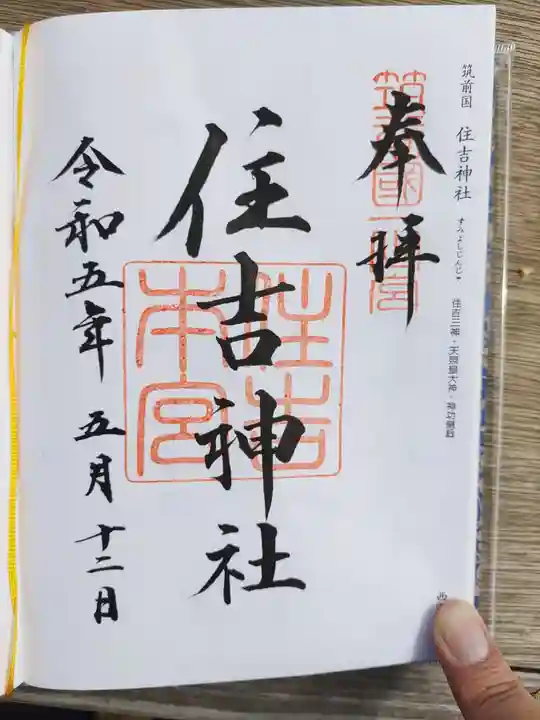 筑前国 住吉神社 すみよしじんじゃ
住吉三神・天照皇大神・神功皇后
奉拝
筑前國一之宮
住吉神社
住吉本宮
令和五年 五月 十二日
西